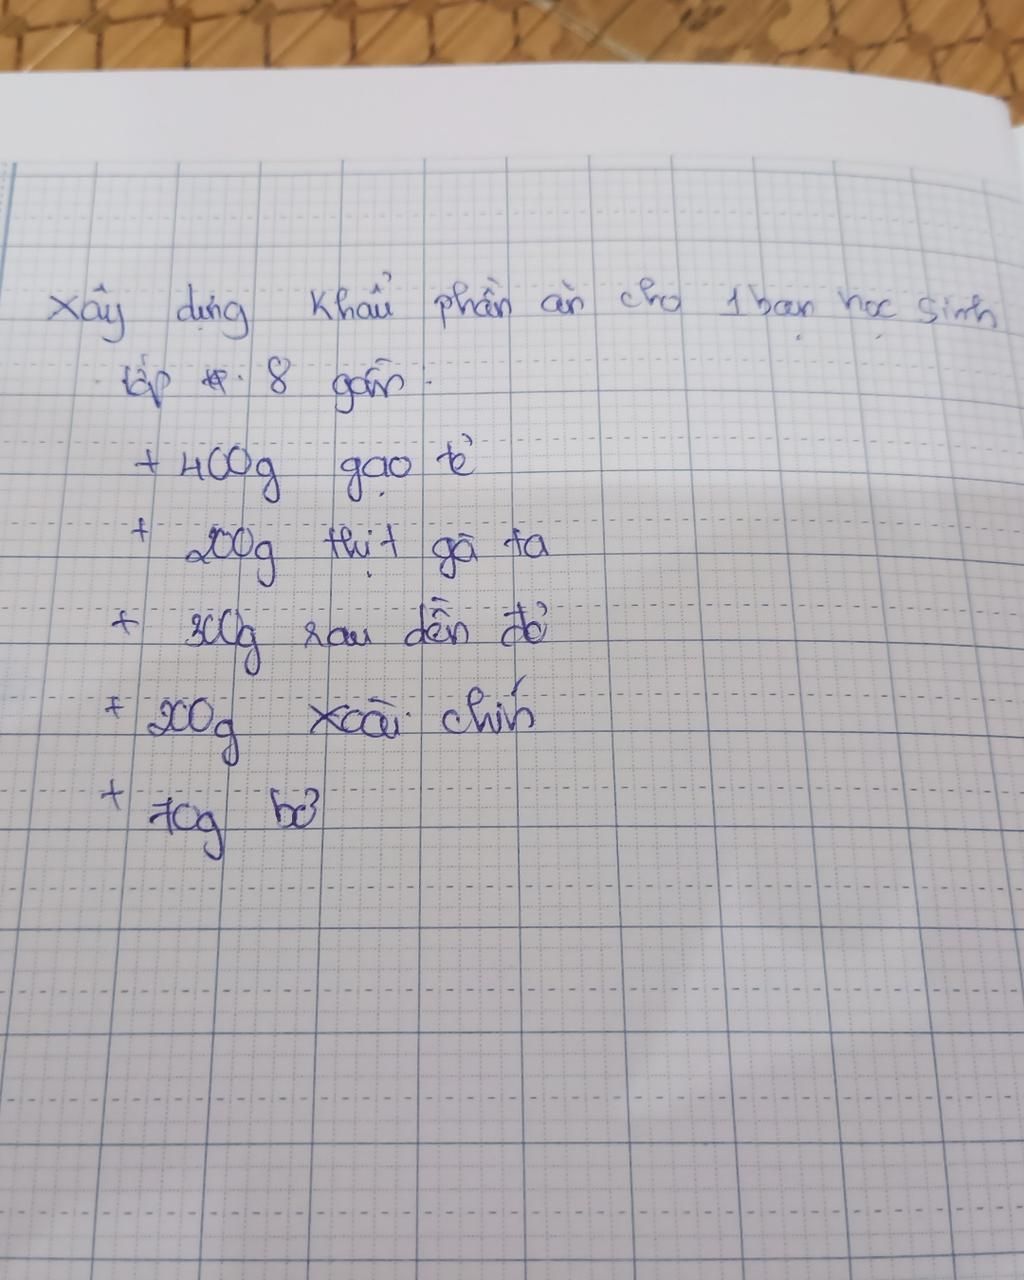 Xây dựng khẩu phần ăn cho 1 bạn học sinh
lớp 8 gồm:
+ 400g gạo tẻ
+ 200g thịt gà ta
+ 300g rau dền đỏ
+ 200g xoài chín
+ 70g bơ